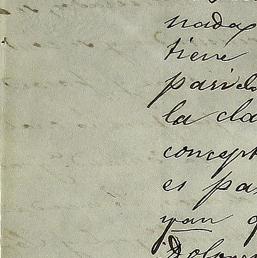 nada
tiene
parida
la cla
concept
es pa
yan q
Dolores